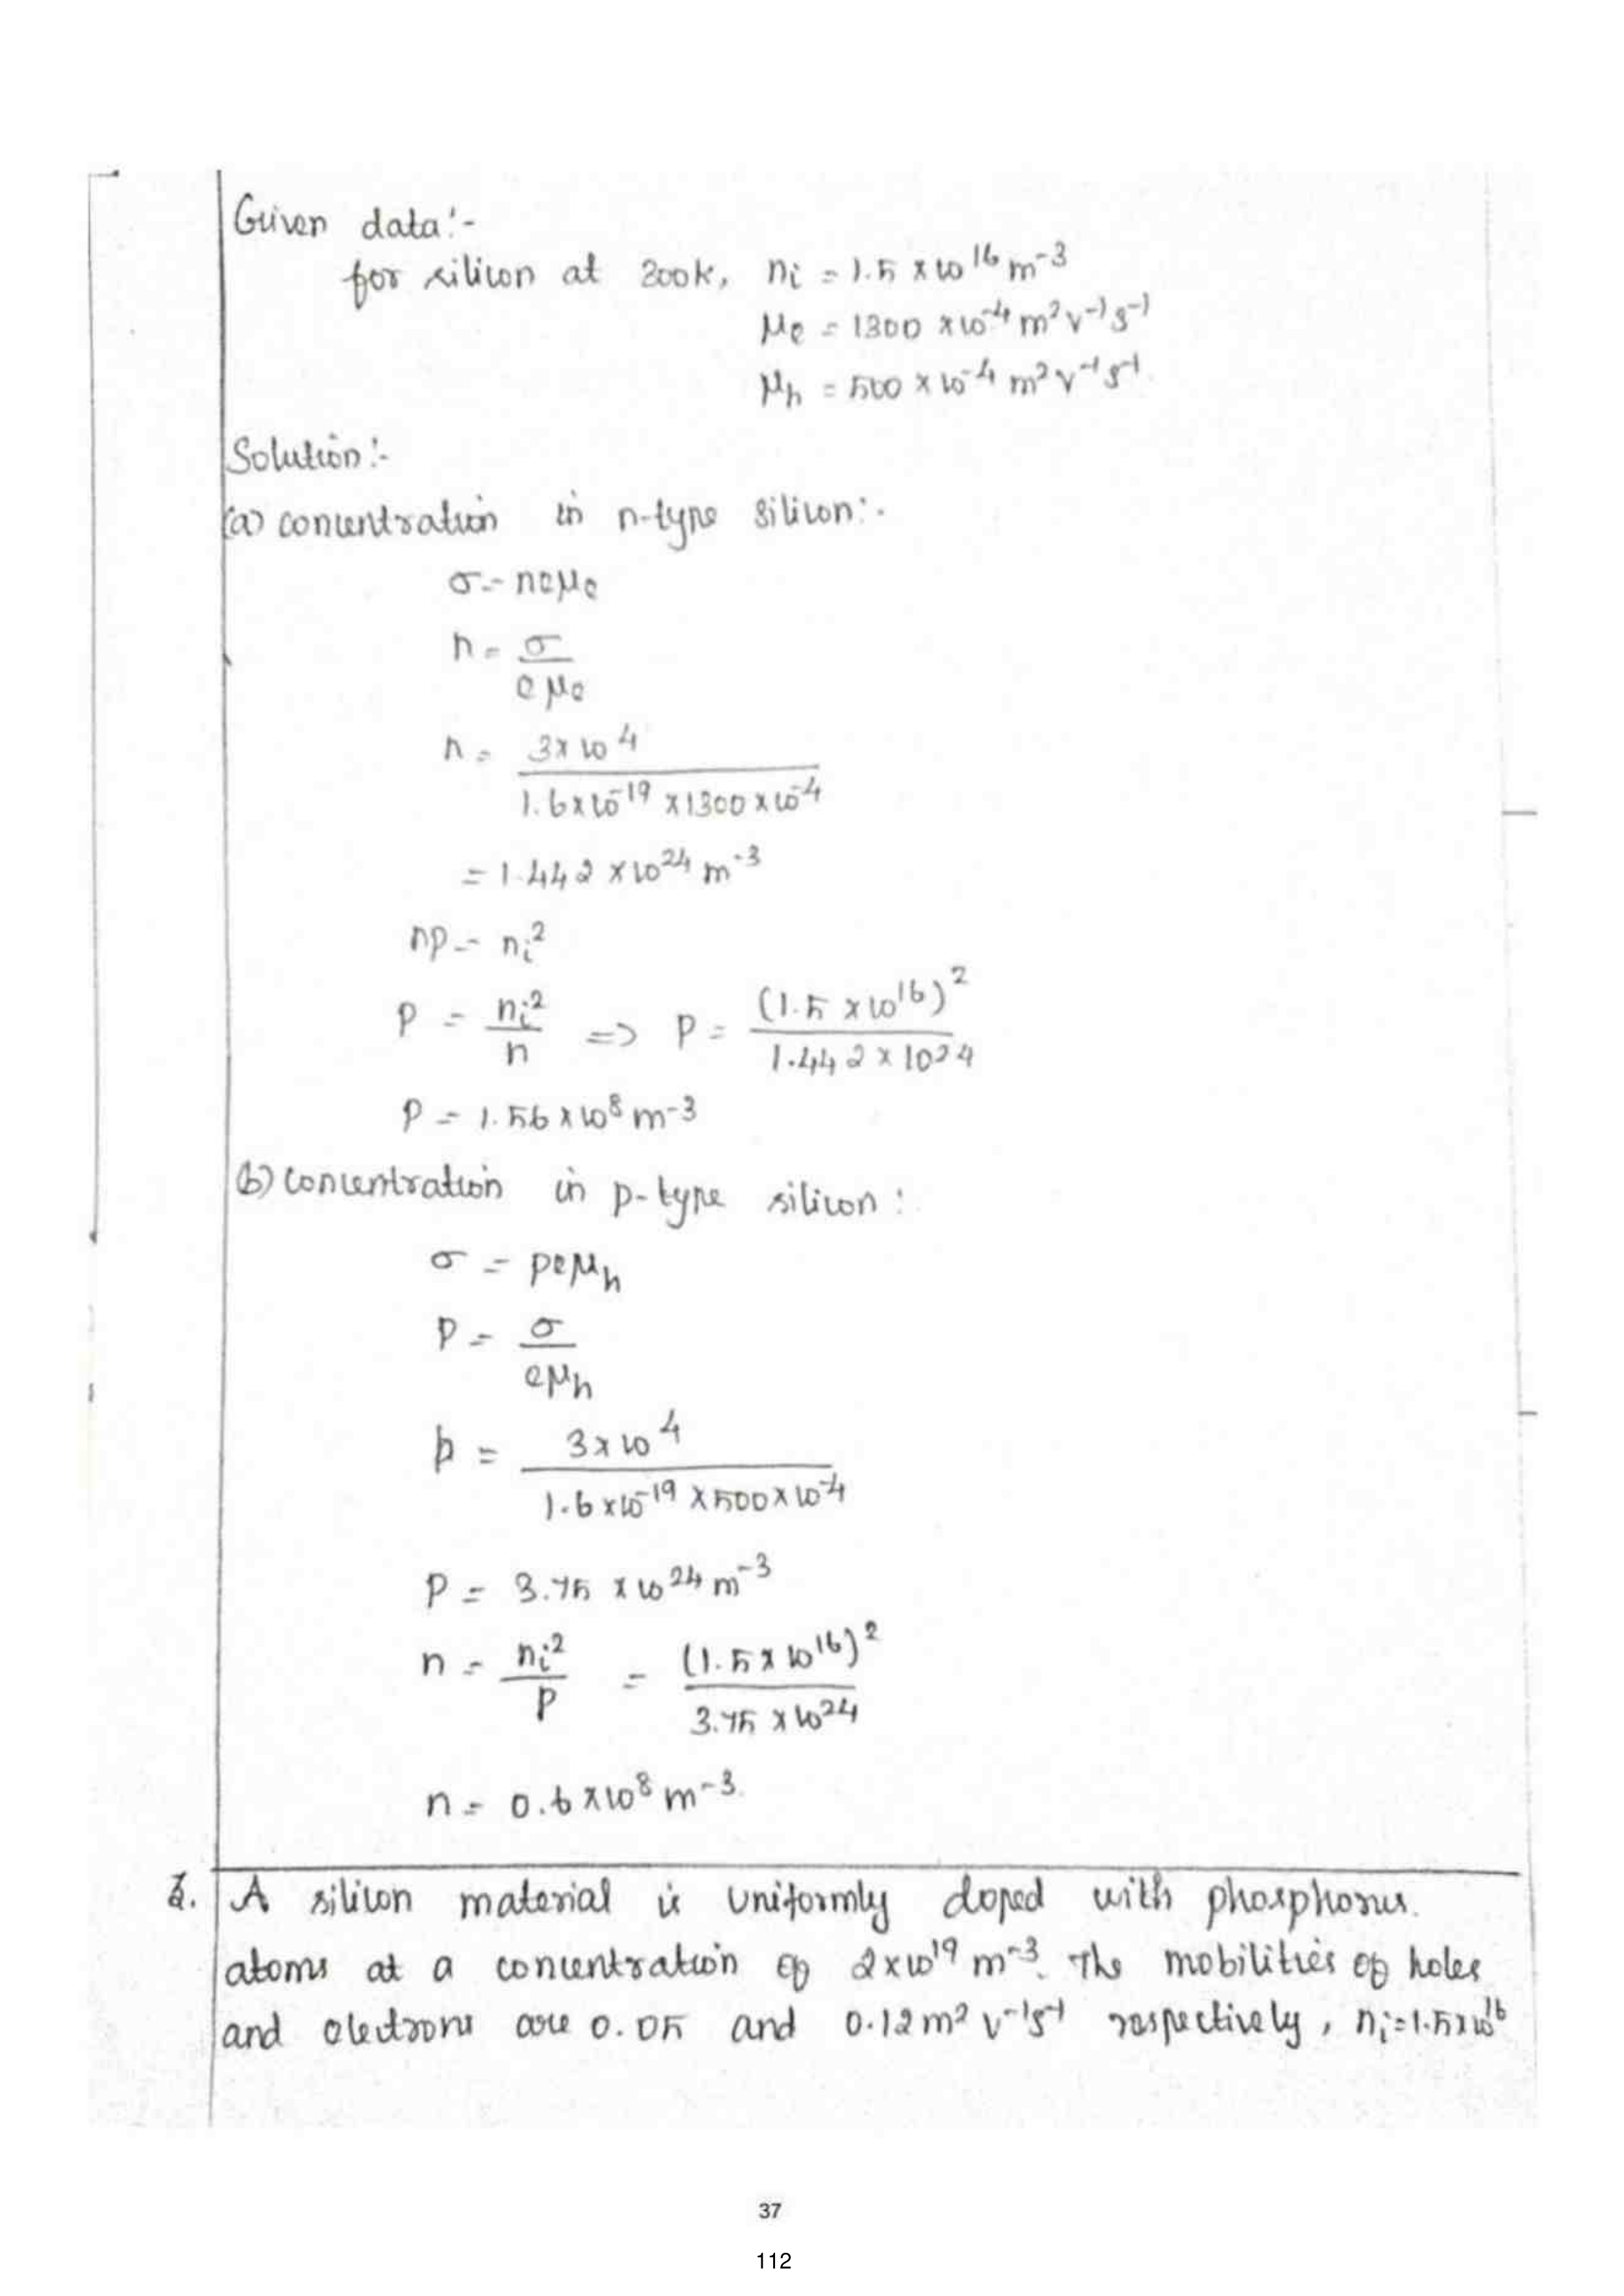 Given data:-
for silicon at 300k, ni = 1.5 x 10^16 m^-3
μe = 1300 x 10^-4 m² v^-1 s^-1
μh = 500 x 10^-4 m² v^-1 s^-1
Solution:-
(a) concentration in n-type silicon:-
σ = neμe
n = σ / eμe
n = 3x10^4 / 1.6x10^-19 x 1300 x 10^-4
= 1.442 x 10^24 m^-3
np = ni²
P = ni² / n => P = (1.5 x 10^16)² / 1.442 x 10^24
P = 1.56 x 10^8 m^-3
(b) concentration in p-type silicon:
σ = peμh
P = σ / eμh
p = 3x10^4 / 1.6x10^-19 x 500 x 10^-4
P = 3.75 x 10^24 m^-3
n = ni² / P = (1.5 x 10^16)² / 3.75 x 10^24
n = 0.6 x 10^8 m^-3.
A silicon material is uniformly doped with phosphorus.
atoms at a concentration of 2x10^19 m^-3. The mobilities of holes
and electrons are 0.05 and 0.12 m² v^-1 s^-1 respectively, ni = 1.5x10^16
37
112